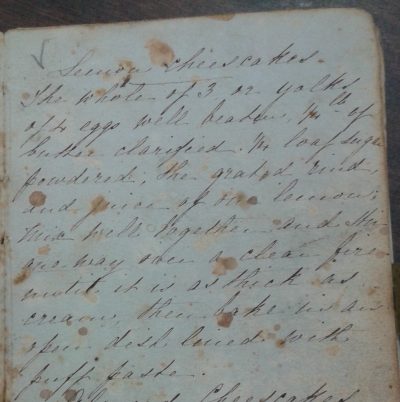 Lemon cheescakes.
The whole of 3 or yolks
of 4 eggs well beaten, ¼ lb of
butter clarified ¼ loaf sugar
powdered, the grated rind,
and juice of one lemon;
mix well together and stir
one way over a clear fire
until it is as thick as
cream, then bake in an
open dish lined with
puff paste.
Cheescakes